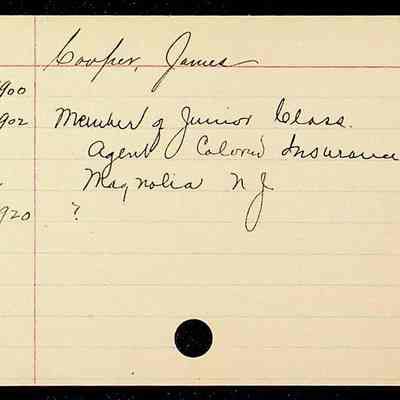 Cooper, James
900
902 Member of Junior Class.
Agent Colored Insurance
Magnolia N J
920 ?